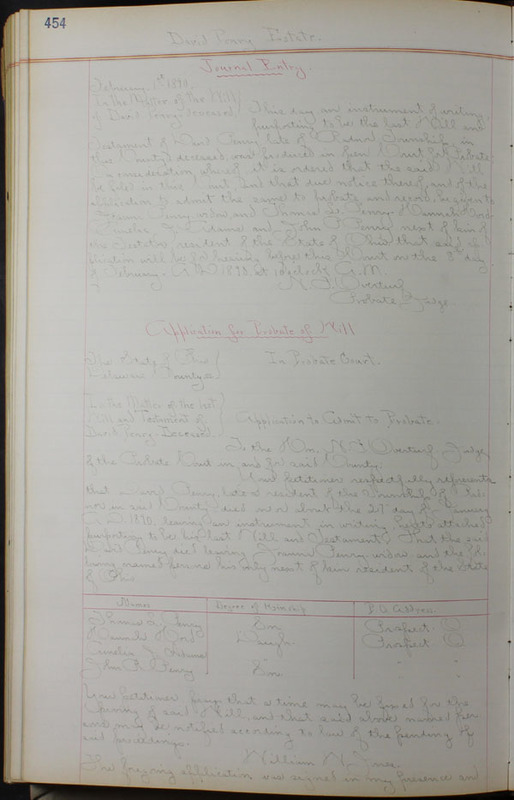 454
David Penry Estate.
Journal Entry
February 1st 1890.
In the Matter of the Will
of David Penry Deceased
This day an instrument of writing
purporting to be the last Will and
Testament of David Penry late of Radnor Township in
this County deceased, was produced in open Court for Probate
consideration whereof it is ordered that the said Will
be filed in this Court and that due notice thereof, and of the
application to admit the same to probate and record, be given to
Penry widow and Thomas Penry Hannah
and John Penry next of kin of
the Testator resident of the State of Ohio that said ap
plication will be for hearing before this Court on the 3rd day
of February A.D. 1890 at 10 o'clock A.M.
N. F. Overturf
Probate Judge
Application for Probate of Will
The State of Ohio
Delaware County ss
In Probate Court.
In the Matter of the last
Will and Testament of
David Penry Deceased
Application to Admit to Probate.
To the Hon. N. F. Overturf Judge
of the Probate Court in and for said County.
Your petitioner respectfully represents
that David Penry, late a resident of the Township of Rad
nor in said County died on or about the 27 day of January
A.D. 1890, leaving an instrument in writing, hereto attached
purporting to be his last Will and Testament. That the said
David Penry died leaving Penry widow and the fol
lowing named persons his only next of kin resident of the State
of Ohio
Names Degree of Heirship P.O. Address
Thomas Penry Son Prospect O
Hannah Daugh. Prospect O
" "
John Penry Son " "
Your petitioner prays that a time may be fixed for the
opening of said Will, and that said above named per
sons may be notified according to law of the pendency of
said proceedings.
William
The foregoing application was signed in my presence and